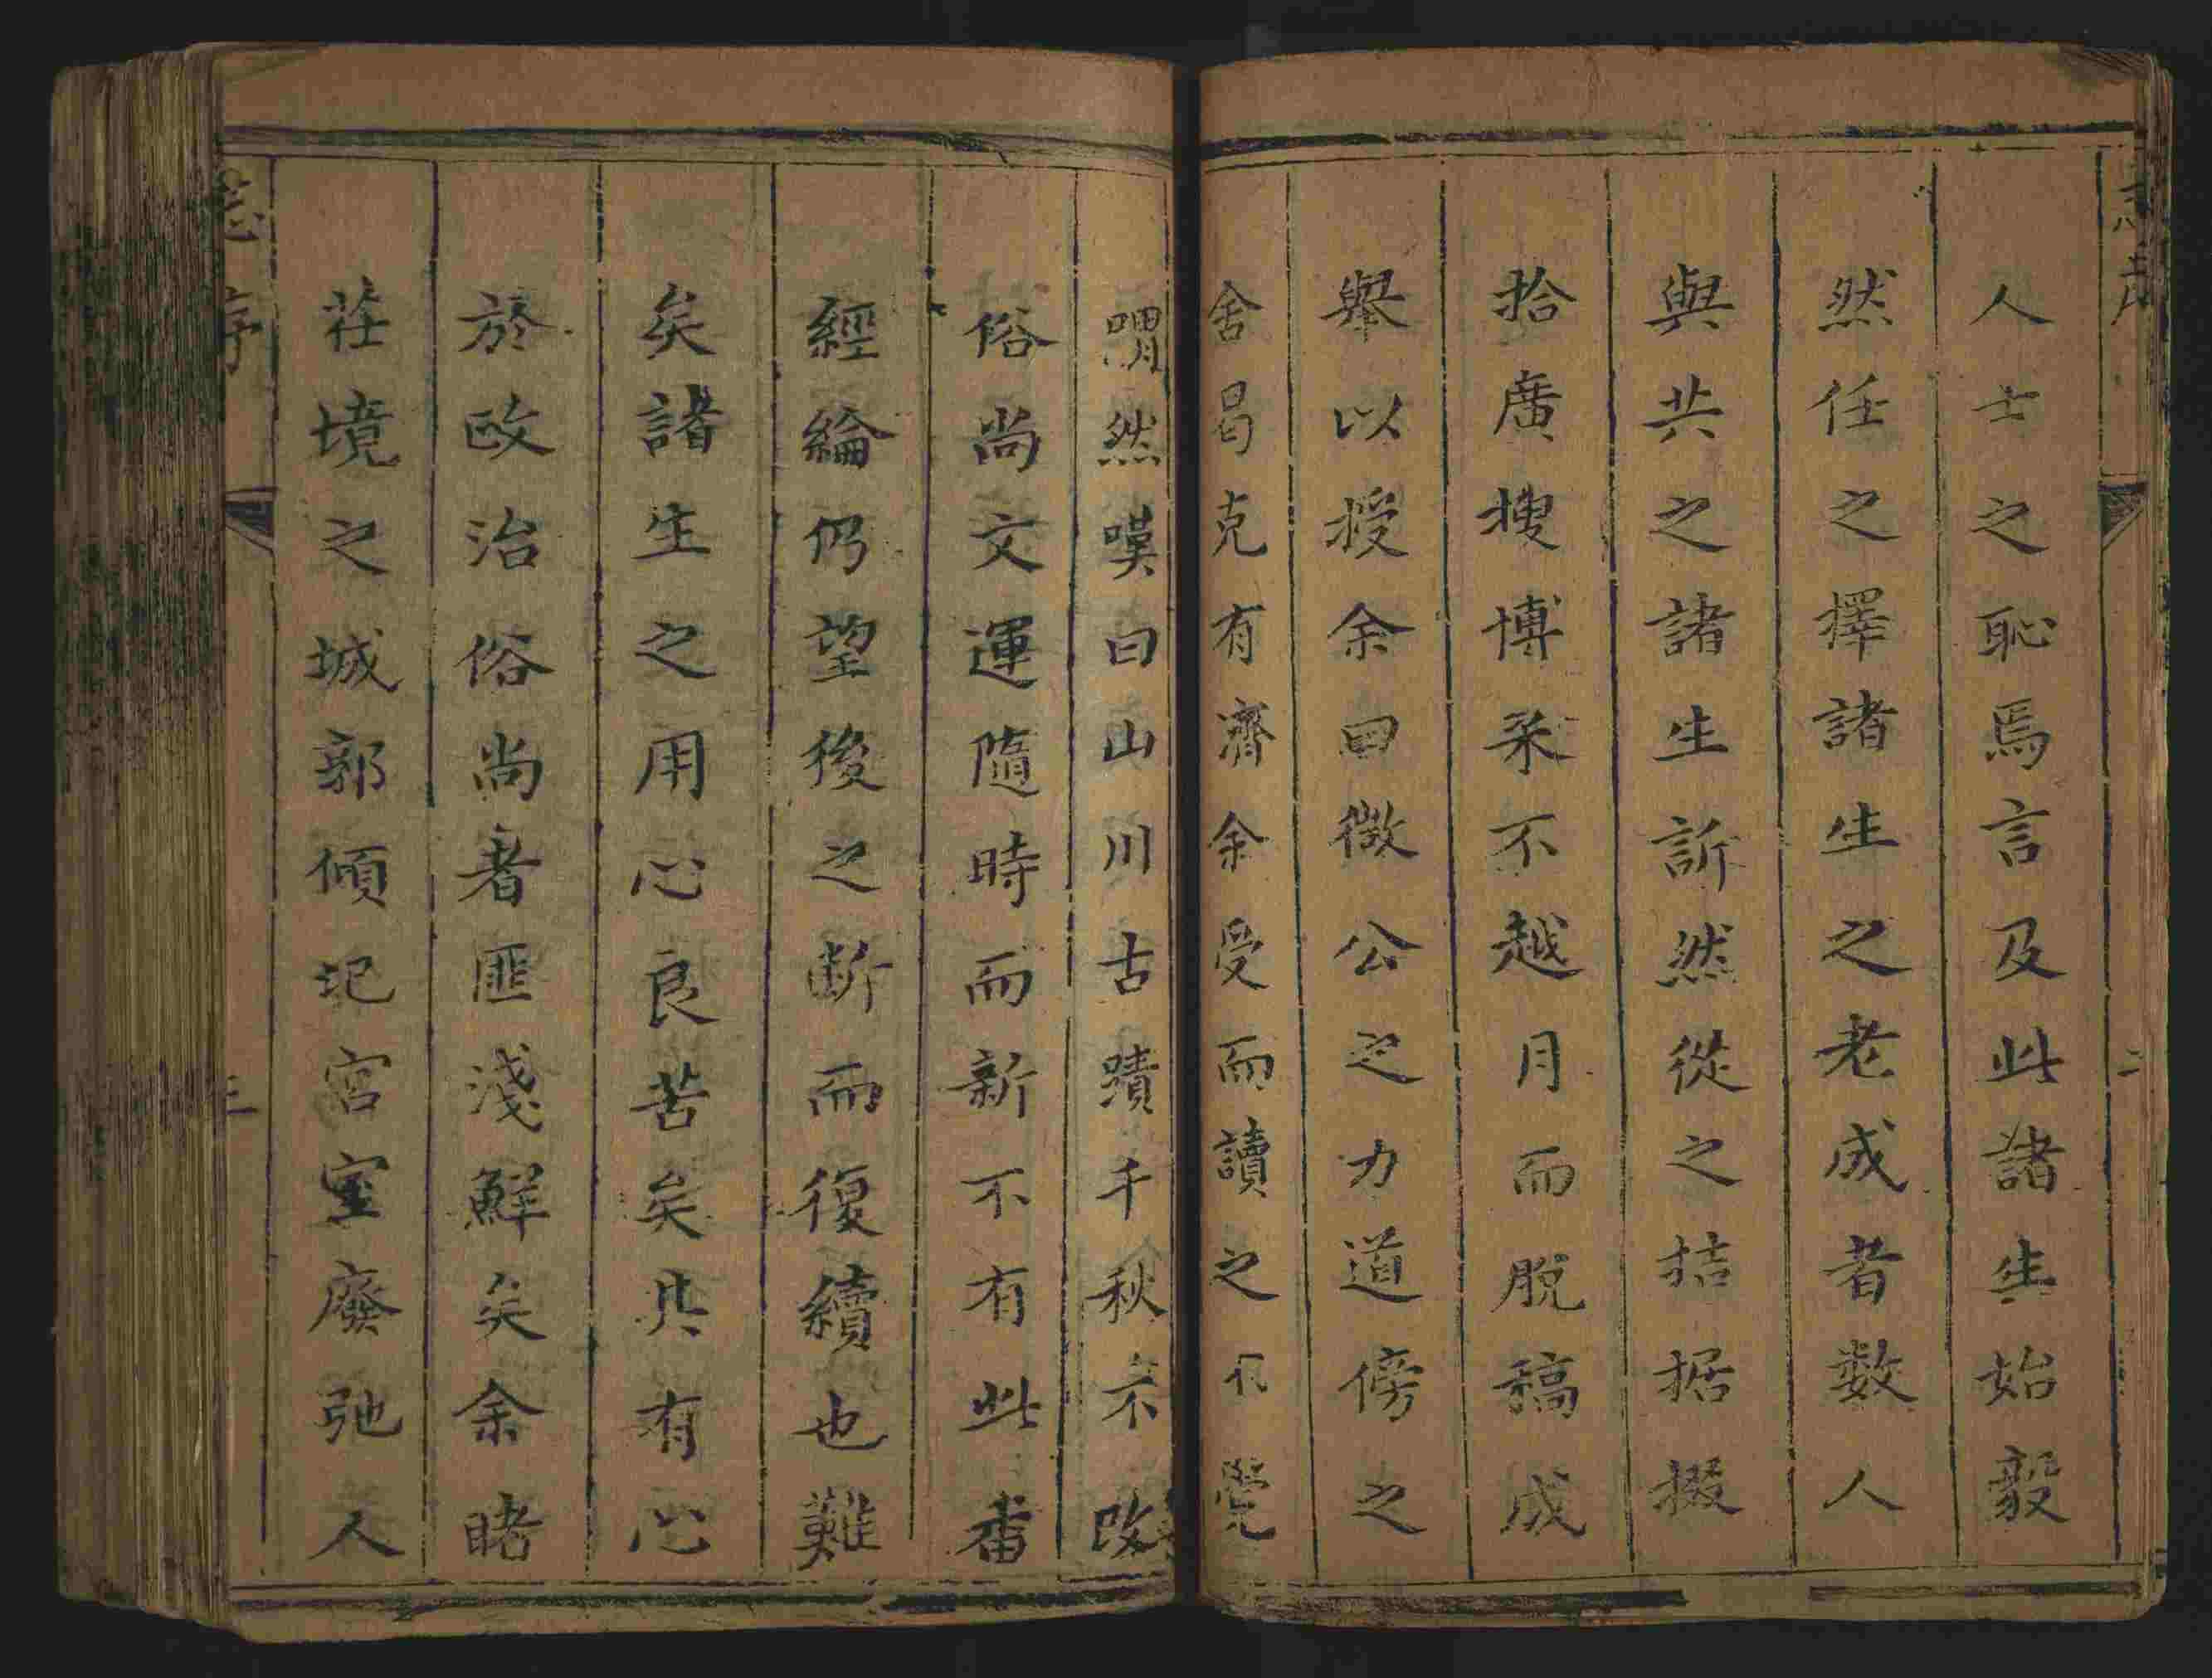 志序
二
人士之恥焉言及此諸生始毅
然任之擇諸生之老成者數人
與共之諸生訢然從之拮据掇
拾廣搜博釆不越月而脫稿成
舉以授余曰微公之力道傍之
舍曷克有濟余受而讀之不覺
喟然嘆曰山川古蹟千秋不改
俗尚文運隨時而新不有此畨
經綸仍望後之斷而復續也難
矣諸生之用心良苦矣其有心
於政治俗尚者匪淺鮮矣余睹
荘境之城郭傾圮宮室廢弛人
志序
三